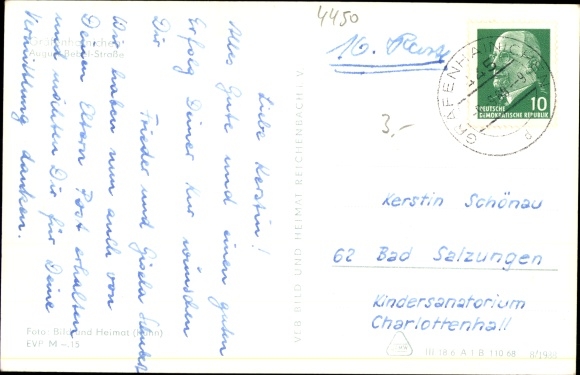 4450
Liebe Kerstin!
Alles Gute und einen guten
Erfolg Deiner Kur wünschen
Dir
Frieder und Gisela
Wir haben nun auch von
Deinen Eltern Post erhalten
und möchten Dir für Deine
Vermittlung danken.
Gräfenhainichen
August-Bebel-Straße
Foto: Bild und Heimat
EVP M -.15
VEB BILD UND HEIMAT REICHENBACH i. V.
GRÄFENHAINICHEN
445
DEUTSCHE
DEMOKRATISCHE REPUBLIK
10
3,-
Kerstin Schönau
62 Bad Salzungen
Kindersanatorium
Charlottenhall
III 18 6 A 1 B 110 68